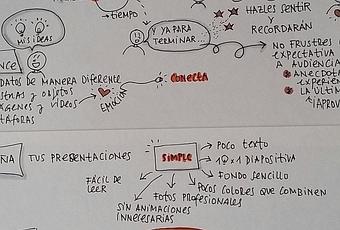 TIEMPO
HAZLES SENTIR
Y
RECORDARÁN
MIS IDEAS
Y YA PARA
TERMINAR...
NO FRUSTRES
EXPECTATIVA
A AUDIENCIA
ANECDOTA
EXPERIE
LA ÚLTIM
¡APROV
NCE
DATOS DE MANERA DIFERENTE
CONECTA
Y OBJETOS
ÁGENES Y VÍDEOS
EMOCIÓN
TÁFORAS
ÑA
TUS PRESENTACIONES
SIMPLE
POCO TEXTO
1 x 1 DIAPOSITIVA
FONDO SENCILLO
FÁCIL DE
LEER
POCOS COLORES QUE COMBINEN
FOTOS PROFESIONALES
SIN ANIMACIONES
INNECESARIAS